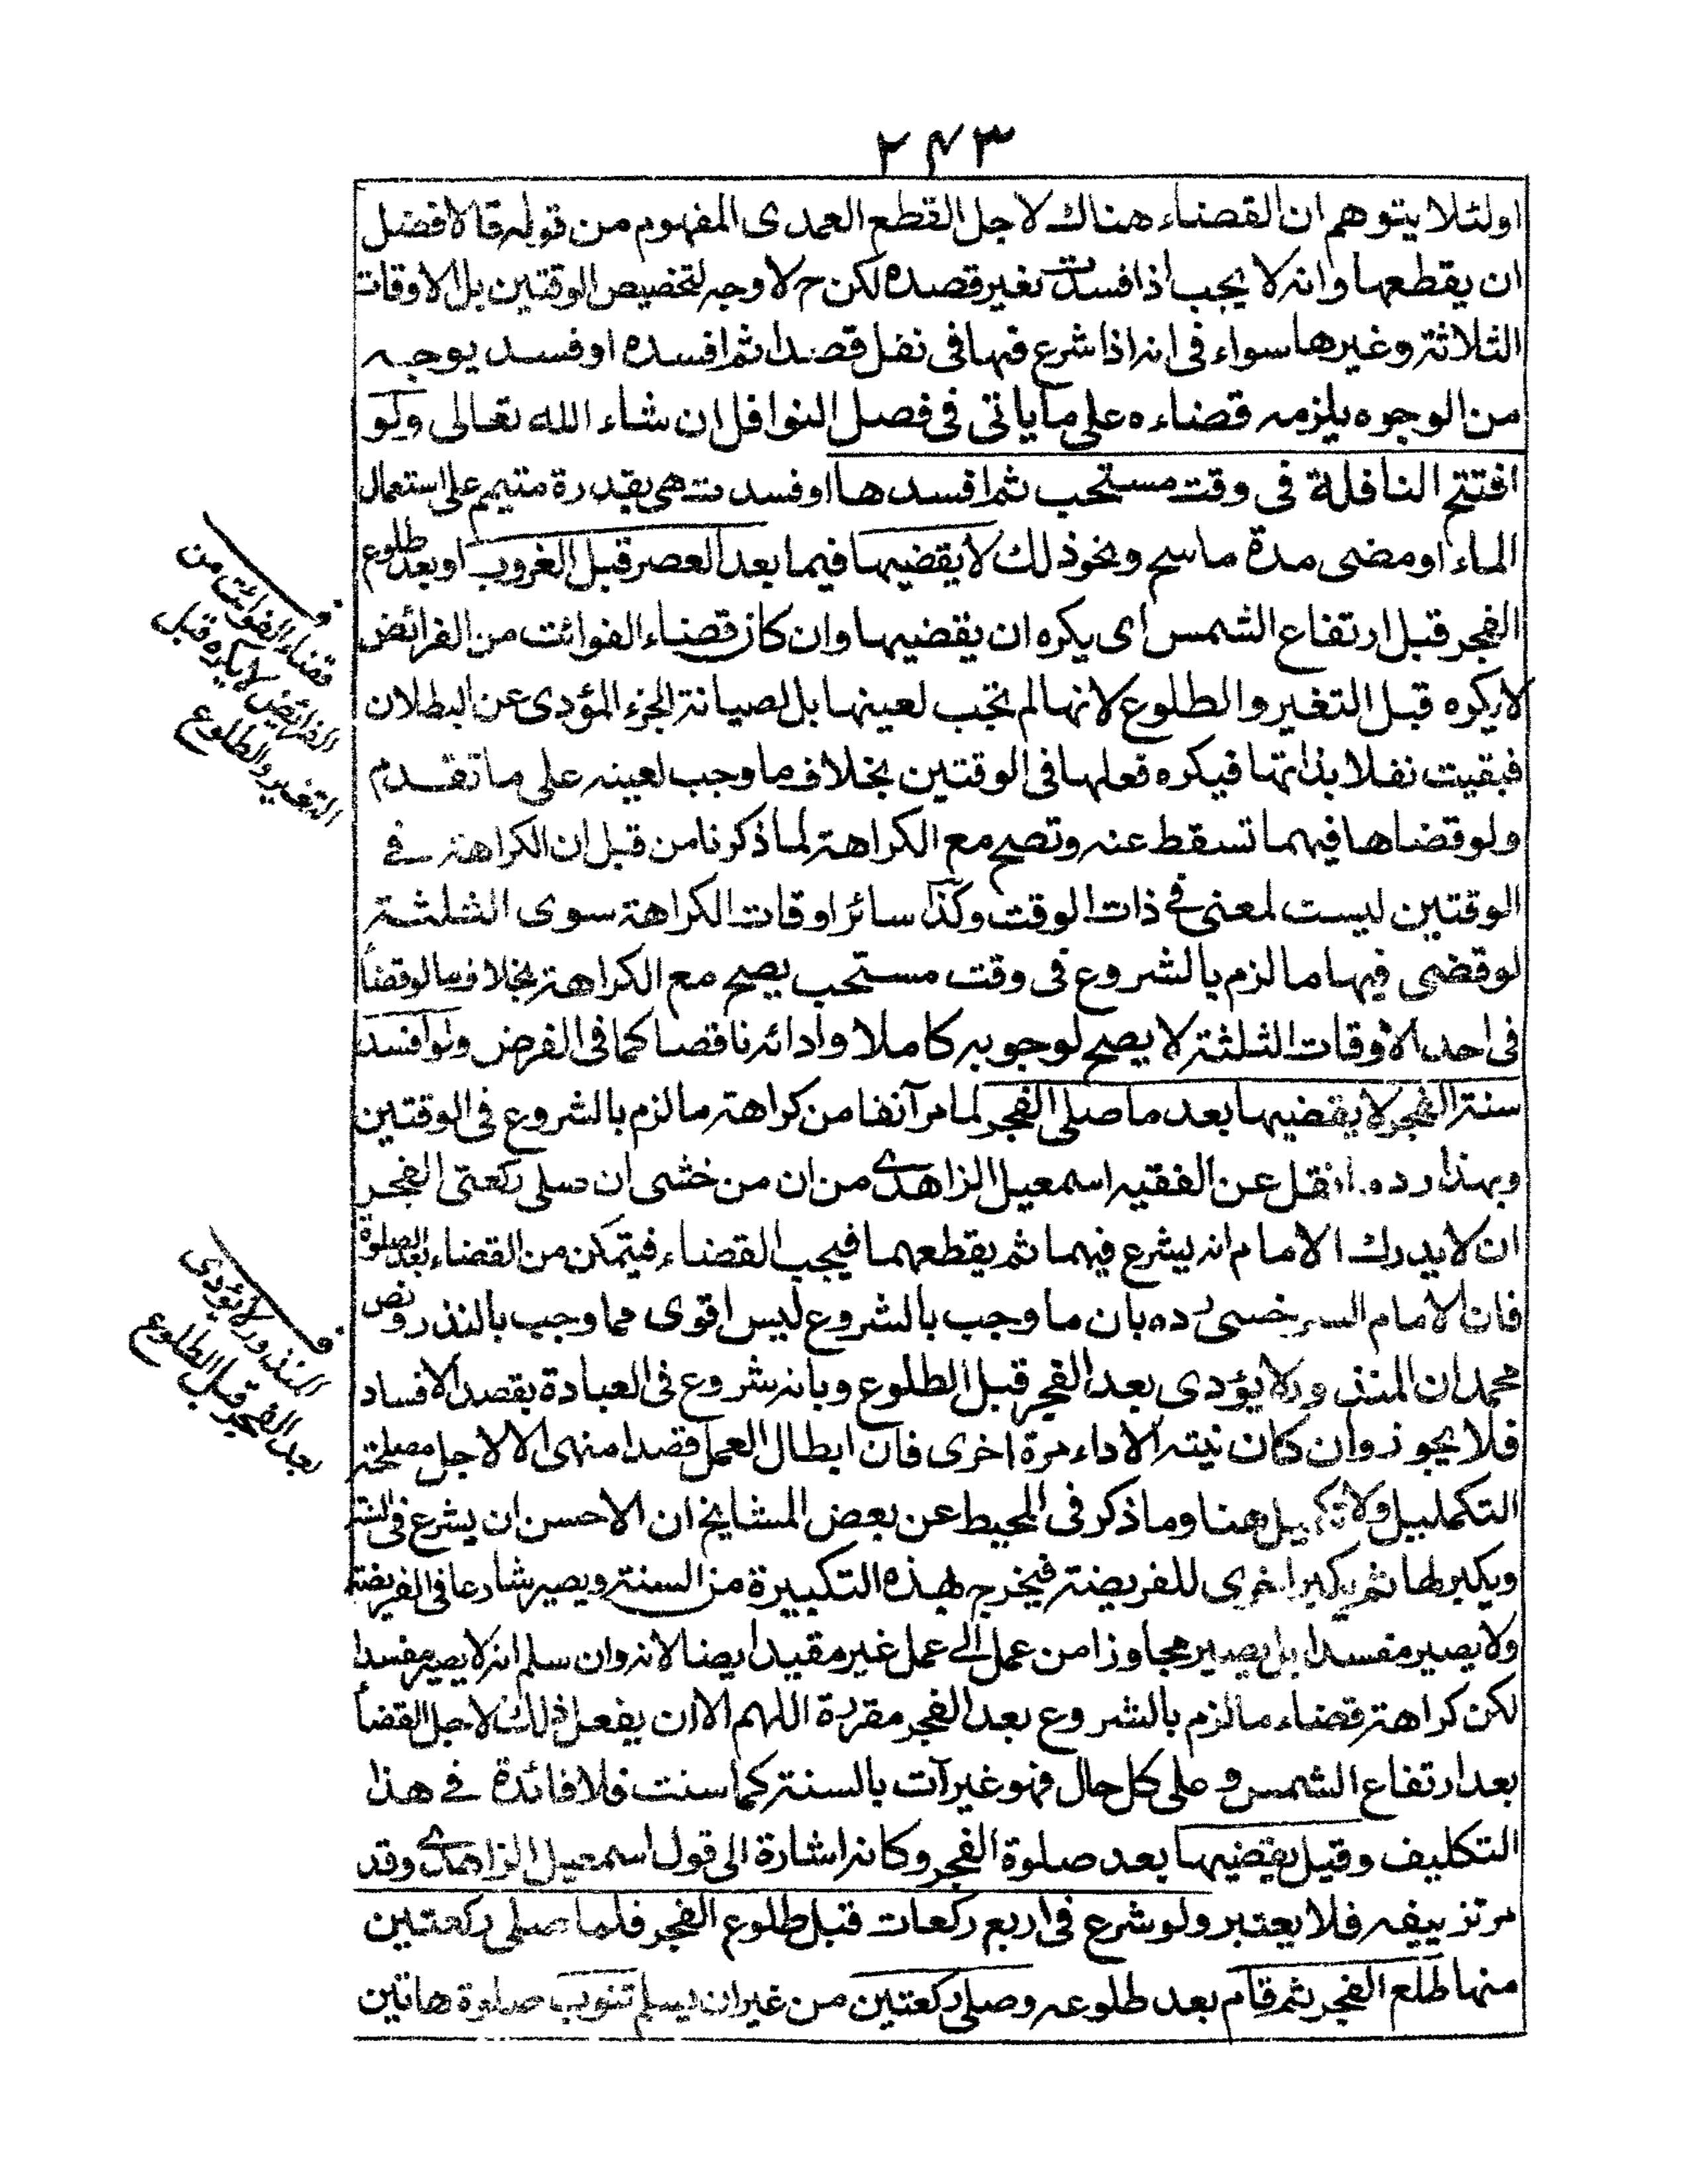 ٢٤٣
اولئلا يتوهم ان القضاء هناك لاجل القطع العمدى المفهوم من قوله قالافضل
ان يقطعها وانه لا يجب اذا فسدت بغير قصده لكن ح لا وجه لتخصيص الوقتين بل الاوقات
الثلاثة وغيرها سواء فى انه اذا شرع فيها فى نفل قصدا ثم افسده او فسد بوجه
من الوجوه يلزمه قضاءه على ما ياتى فى فصل النوافل ان شاء الله تعالى ولو
افتتح النافلة فى وقت مستحب ثم افسدها او فسدت هى بقدرة متيمم على استعمال
الماء او مضى مدة ماسح ونحو ذلك لا يقضيها فيما بعد العصر قبل الغروب او بعد طلوع
الفجر قبل ارتفاع الشمس اى يكره ان يقضيها وان كان قضاء الفوائت من الفرائض
لا يكره قبل التغير والطلوع لانها لم تجب لعينها بل لصيانة الجزء المؤدى عن البطلان
فبقيت نفلا بذاتها فيكره فعلها فى الوقتين بخلاف ما وجب لعينه على ما تقدم
ولو قضاها فيهما تسقط عنه وتصح مع الكراهة لما ذكرنا من قبل ان الكراهة فى
الوقتين ليست لمعنى فى ذات الوقت وكذا سائر اوقات الكراهة سوى الثلثة
لو قضى فيها ما لزم بالشروع فى وقت مستحب يصح مع الكراهة بخلاف ما لو قضاً
فى احد الاوقات الثلثة لا يصح لوجوبه كاملا وادائه ناقصا كما فى الفرض ولو افسد
سنة الفجر لا يقضيها بعد ما صلى الفجر لما مر آنفا من كراهة ما لزم بالشروع فى الوقتين
وبهذا رد ما نقل عن الفقيه اسمعيل الزاهدى من ان من خشى ان صلى ركعتى الفجر
ان لا يدرك الامام انه يشرع فيهما ثم يقطعهما فيجب القضاء فيتمكن من القضاء بعد الصلوة
فان الامام السرخسى رده بان ما وجب بالشروع ليس اقوى مما وجب بالنذر ونص
محمد ان المنذور لا يؤدى بعد الفجر قبل الطلوع وبانه شروع فى العبادة بقصد الافساد
فلا يجوز وان كان نيته الاداء مرة اخرى فان ابطال العمل قصدا منهى الا لاجل مصلحة
التكمليل ولا تكميل هنا وما ذكر فى المحيط عن بعض المشايخ ان الاحسن ان يشرع فى السنة
ويكبر لها ثم يكبر اخرى للفريضة فيخرج بهذه التكبيرة من السنة ويصير شارعا فى الفريضة
ولا يصير مفسدا بل يصير مجاوزا من عمل الى عمل غير مقيد ايضا لانه وان سلم انه لا يصير مفسدا
لكن كراهة قضاء ما لزم بالشروع بعد الفجر مقررة اللهم الا ان يفعل ذلك لاجل القضأ
بعد ارتفاع الشمس و على كل حال فهو غير آت بالسنة كما سنت فلا فائدة فى هذا
التكليف وقيل يقضيها بعد صلوة الفجر وكانه اشارة الى قول اسمعيل الزاهدى وقد
مر تزييفه فلا يعتبر ولو شرع فى اربع ركعات قبل طلوع الفجر فلما صلى ركعتين
منها طلع الفجر ثم قام بعد طلوعه وصلى ركعتين من غير ان يسلم تنوب صلوة هاتين
ف
قضاء الفوائت من
الفرائض لا يكره قبل
التغير والطلوع
ف
المنذور لا يؤدى
بعد الفجر قبل الطلوع